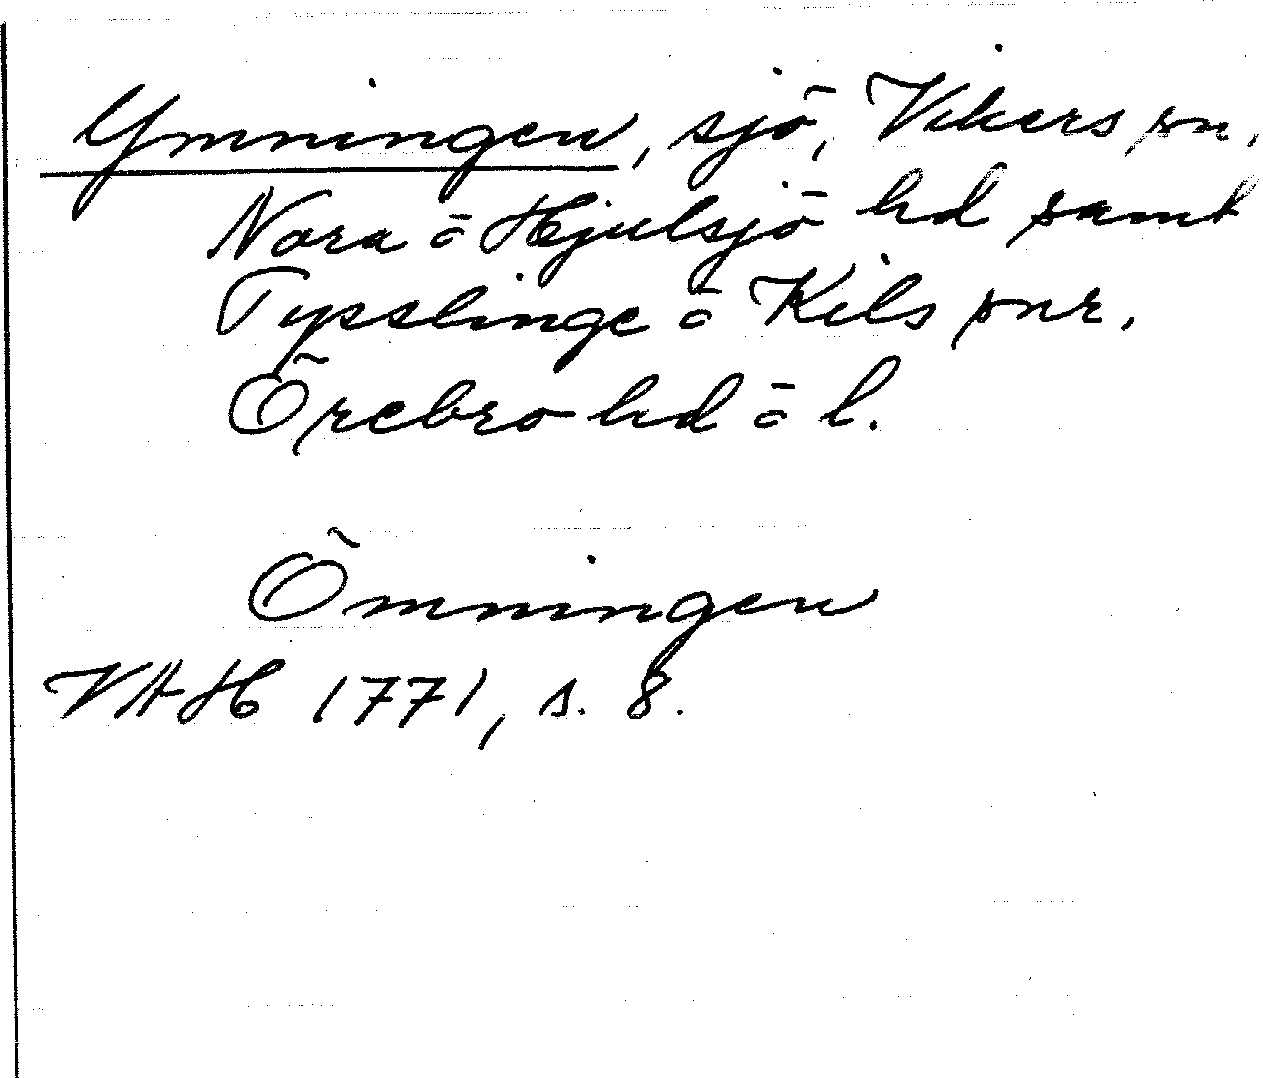 Ymningen, sjö, Vikers sn,
Nora o Hjulsjö hd samt
Tysslinge o Kils snr,
Örebro hd o l.
Ömningen
VAH 1771, s. 8.